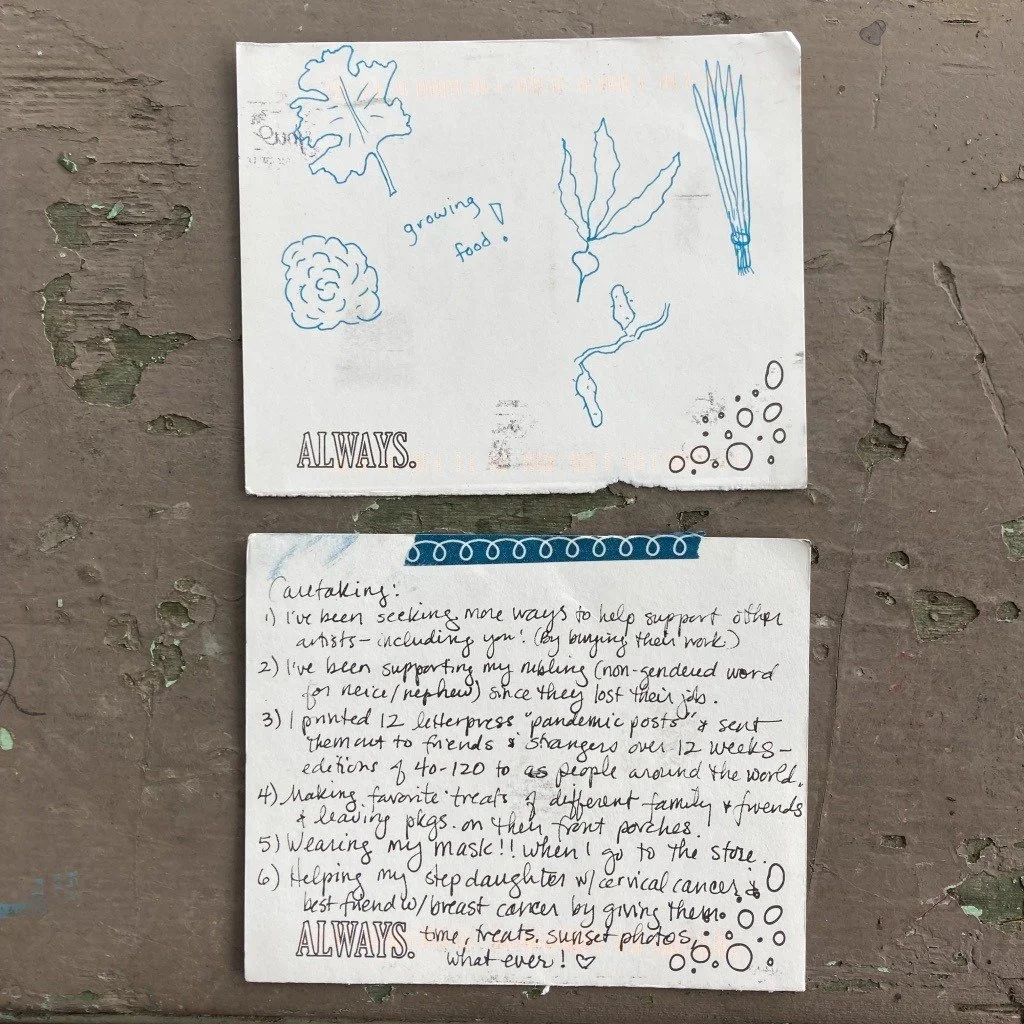 growing
food!
ALWAYS.
Caretaking:
1) I've been seeking more ways to help support other
artists - including you! (By buying their work.)
2) I've been supporting my nibling (non-gendered word
for neice/nephew) since they lost their job.
3) I printed 12 letterpress "pandemic posts" & sent
them out to friends & strangers over 12 weeks -
editions of 40-120 to people around the world.
4) Making favorite treats of different family & friends
& leaving pkgs. on their front porches.
5) Wearing my mask!! when I go to the store.
6) Helping my stepdaughter w/cervical cancer &
best friend w/breast cancer by giving them
time, treats, sunset photos,
ALWAYS.
what ever! ♡